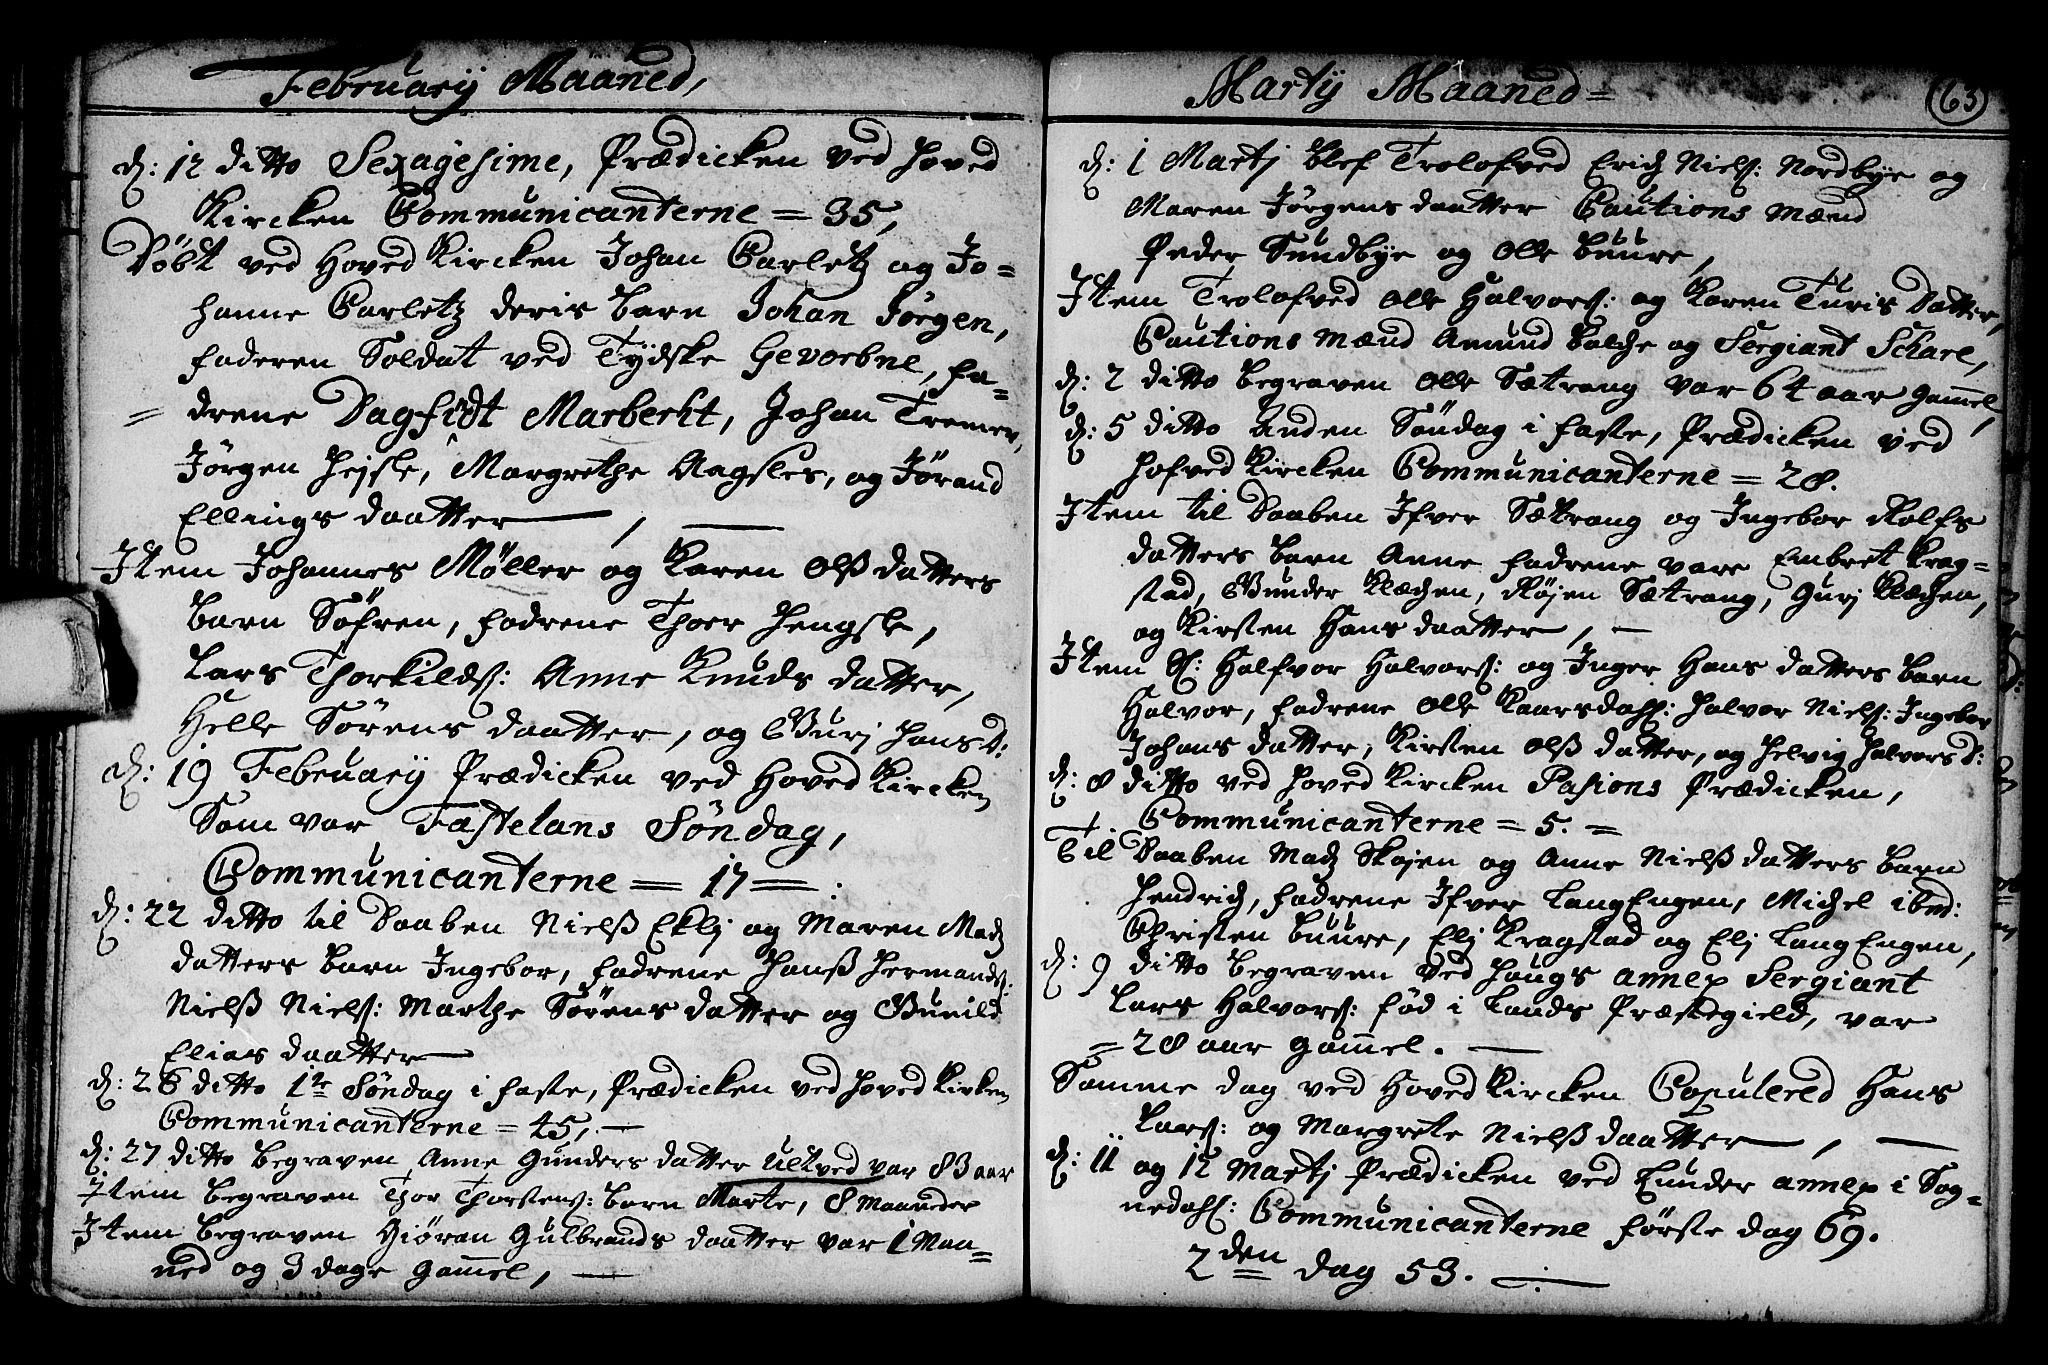 Februarij Maaned,
d: 12 ditto Sexagesime, Prædicken ved Hoved
Kircken Communicanterne = 35,
Döbt ved Hoved Kircken Johan Carletz og Jo=
hanne Carletz deris barn Johan Jörgen,
faderen Soldat ved Tydske Gevorbne, fa=
= drene Dagfidt Marbecht, Johan Tremer,
Jörgen Hejsle, Margrethe Aagsles, og Jörand
Ellings daatter —, —
Jtem Johannes Møller og Karen Olß datters
barn Söfren, fadrene Thoer Hengsle,
Lars Thorkilds: Anne Knuds datter,
Helle Sörens daatter, og Gurj Hans D:
d: 19 Februarij Prædicken ved Hoved Kircken
Som var Fastelans Söndag,
Communicanterne = 17 = :
d: 22 ditto til Daaben Nielß Eklj og Maren Madz
datters barn Ingebor, fadrene Hanß Hermands:
Nielß Niels: Marthe Sörens datter og Gunild
Elias daatter —
d: 26 ditto 1te Söndag i faste, Prædicken ved Hoved Kirken
Communicanterne = 45, —
d: 27 ditto begraven Anne Gunders datter Ultved var 83 aar
Jtem begraven Thor Thorstens: barn Marte, 8 Maaneder
Jtem begraven Giöran Gulbrands daatter var 1 Maa=
ned og 3 dage gam̄el, —
Martij Maaned =
63
d: 1 Martj blef Trolofved Erich Niels: Nordbye og
Maren Jörgens daatter Cautions mænd
Peder Sundbye og Olle Buure,
Jtem Trolofved Olle Halvors: og Karen Turis Datter,
Cautions mænd Amund Balche og Sergiant Scharl,
d: 2 ditto begraven Olle Sætrang var 64 aar gam̄el,
d: 5 ditto Anden Söndag i faste, Prædicken ved
Hofved Kircken Communicanterne = 28.
Jtem til Daaben Ifver Sætrang og Ingebor Rolfs
datters barn Anne fadrene vare Embret Krag=
stad, Gunder Klæchen, Røjen Sætrang, Gurj Klæchen,
og Kirsten Hans daatter, —
Jtem Sl: Halfvor Halvors: og Inger Hans datters barn
Halvor, fadrene Olle Kaarsdahl: Halvor Niels: Ingebor
Johans datter, Kirsten Olß datter, og Helvig Halvors d:
d: 8 ditto ved Hoved Kircken Pasions Prædicken,
Communicanterne = 5. =
Til Daaben Madz Skojen og Anne Nielß datters barn
Hendrich, fadrene Ifver Lang Engen, Michel ibm:
Christen Buure, Elj Kragstad og Elj Lang Engen,
d: 9 ditto begraven ved Haugs annex Sergiant
Lars Halvors: föd i Lands Præstegield, var
= 28 aar gam̄el. —
Samme dag ved Hoved Kircken Copulered Hans
Lars: og Margrete Nielß daatter —, —
d: 11 og 12 Martj Prædicken ved Lunder annex i Sog=
nedahl: Communicanterne förste dag 69.
2den dag 53. —